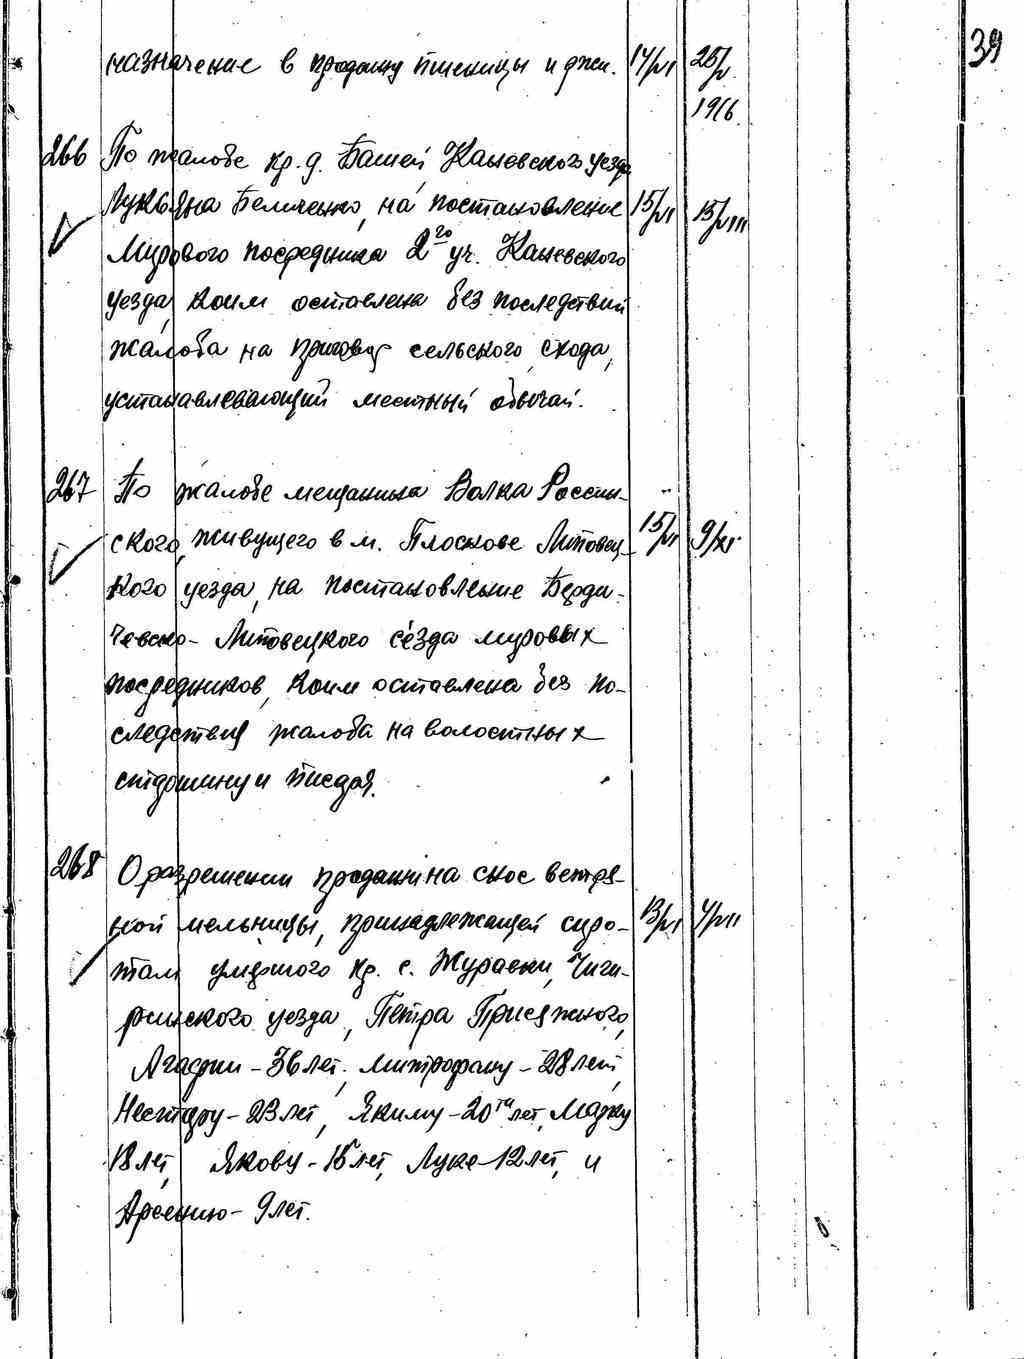 39
назначение в продажу пшеницы и 14/VI 25/V
1916.
266 По жалобе кр. д. Башей Каневского уезда
Лукьяна Беличенко, на постановление 15/VI 15/VIII
Мирового посредника 2го уч. Каневского
уезда, коим оставлена без последствий
жалоба на приговор сельского схода,
устанавлевающий местный обычай.
267 По жалобе мещанина Волка Россин-
ского, живущего в м. Плоскове Липовец- 15/VI 9/XI
кого уезда, на постановление Берди-
чевско-Липовецкого съезда мировых
посредников, коим оставлена без по-
следствия жалоба на волостных
старшину и писаря.
268 О разрешении продажи на снос ветря-
ной мельницы, принадлежащей сиро- 13/VI 4/VII
там умершого кр. с. Журавки, Чиги-
ринского уезда, Петра Присяжного,
Агафии - 36 лет, Митрофану - 28 лет,
Нестеру - 23 лет, Якиму - 20ти лет, Марку
18 лет, Якову - 15 лет, Луке - 12 лет, и
Арсению - 9 лет.